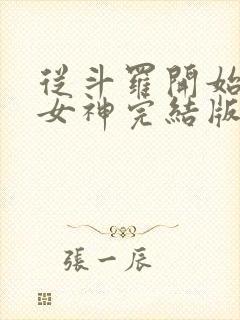 從斗羅開始
女神完結版
張一辰